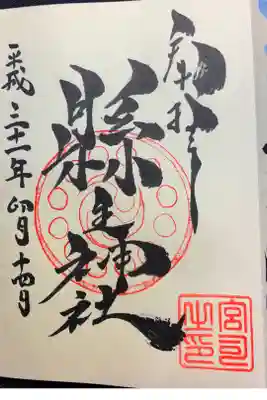 奉拝
縣主神社
平成三十一年卯月十四日
宮司
之印